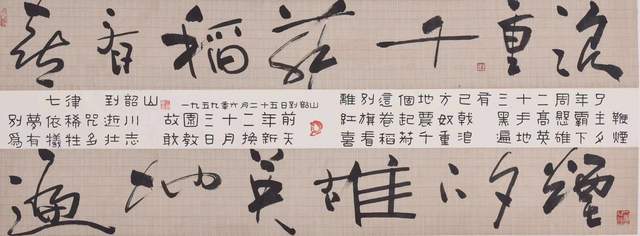 喜看稻菽千重浪
七律 到韶山 一九五九年六月二十五日到韶山
離別這個地方已有三十二周年了
別夢依稀咒逝川 故園三十二年前
紅旗卷起農奴戟 黑手高懸霸主鞭
為有犧牲多壯志 敢教日月換新天
喜看稻菽千重浪 遍地英雄下夕煙
遍地英雄下夕煙